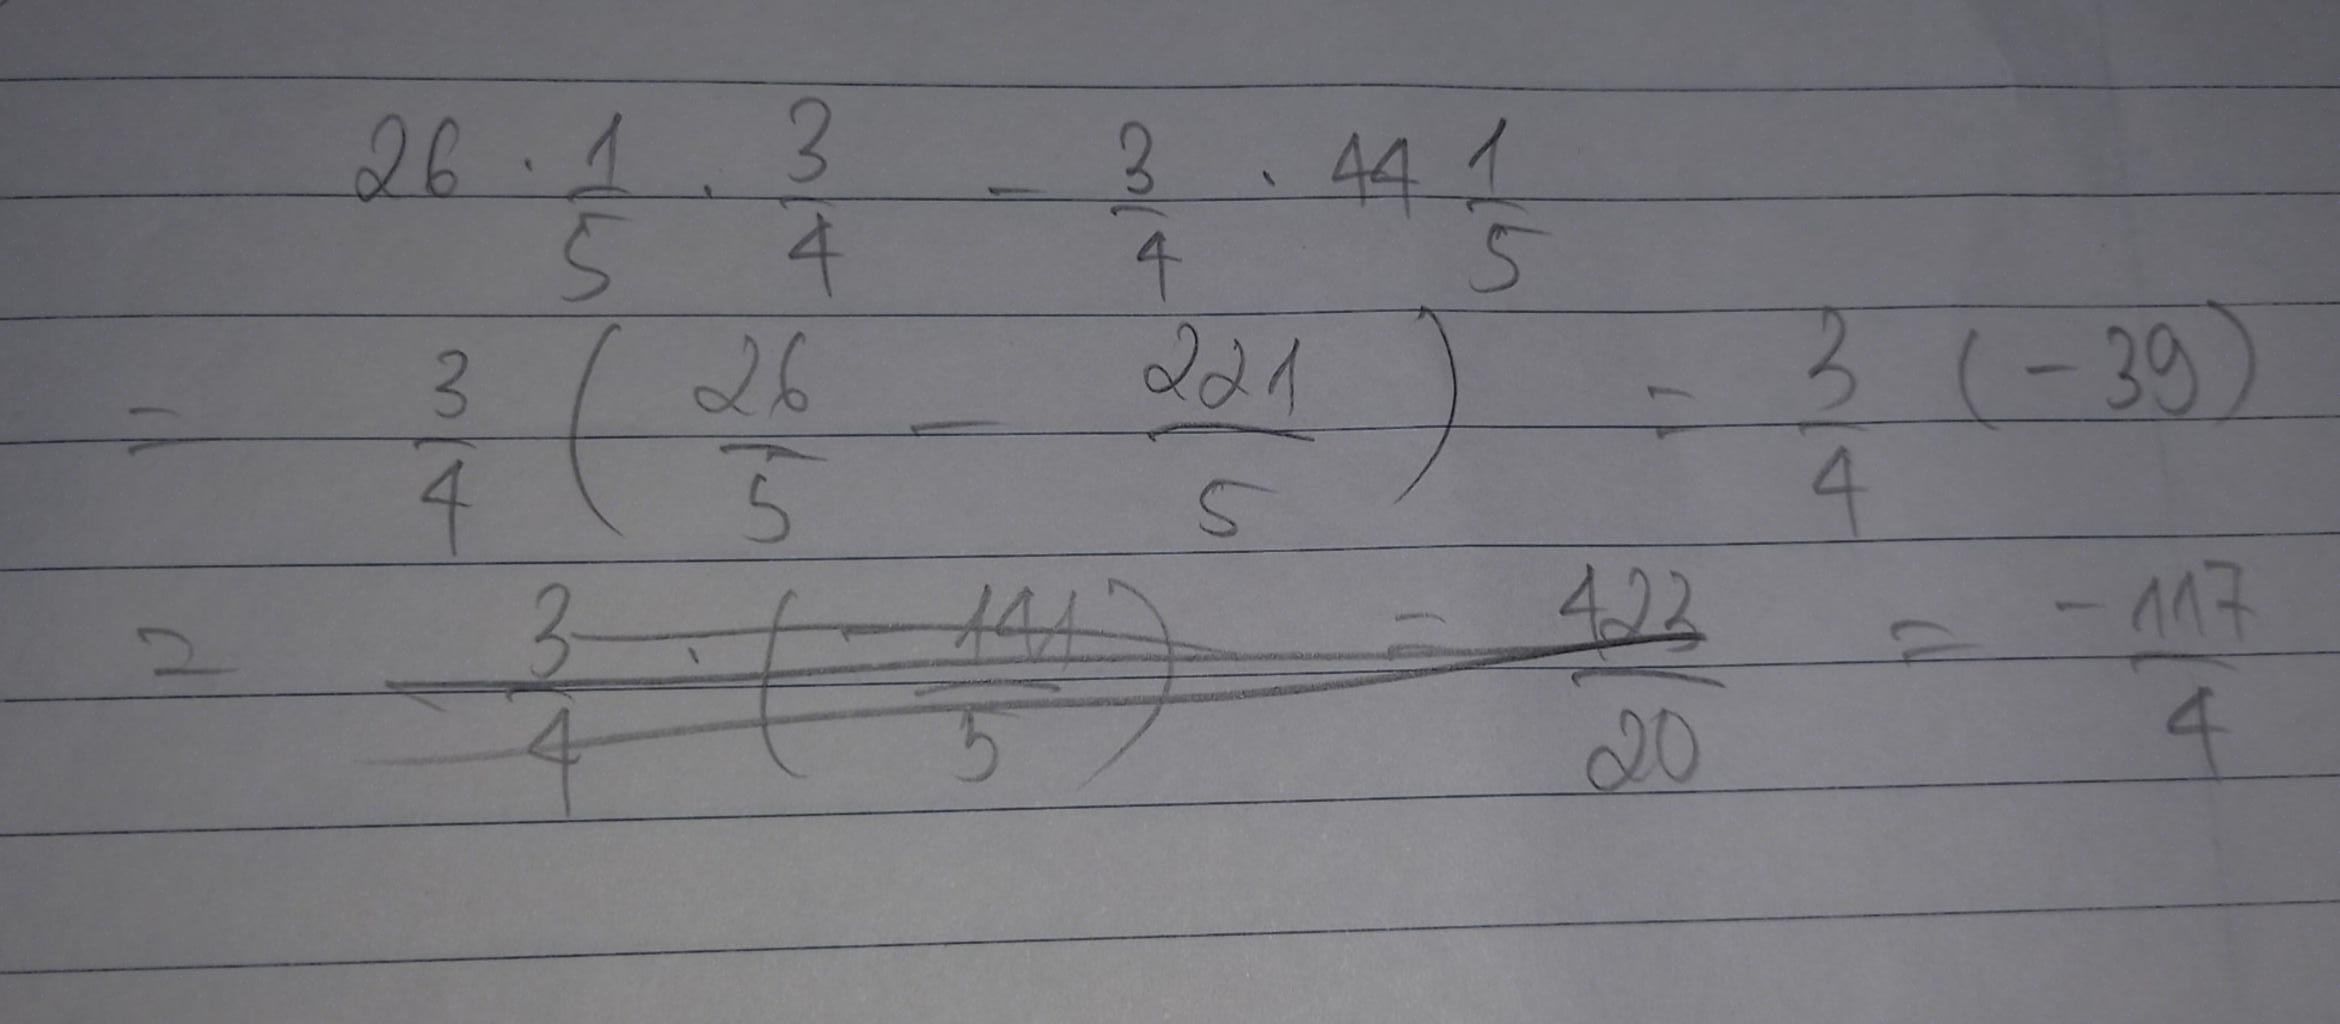 26 · 1/5 · 3/4 - 3/4 · 44 1/5
= 3/4 ( 26/5 - 221/5 ) = 3/4 (-39)
= 3/4 · ( - 141/5 ) = 423/20 = -117/4